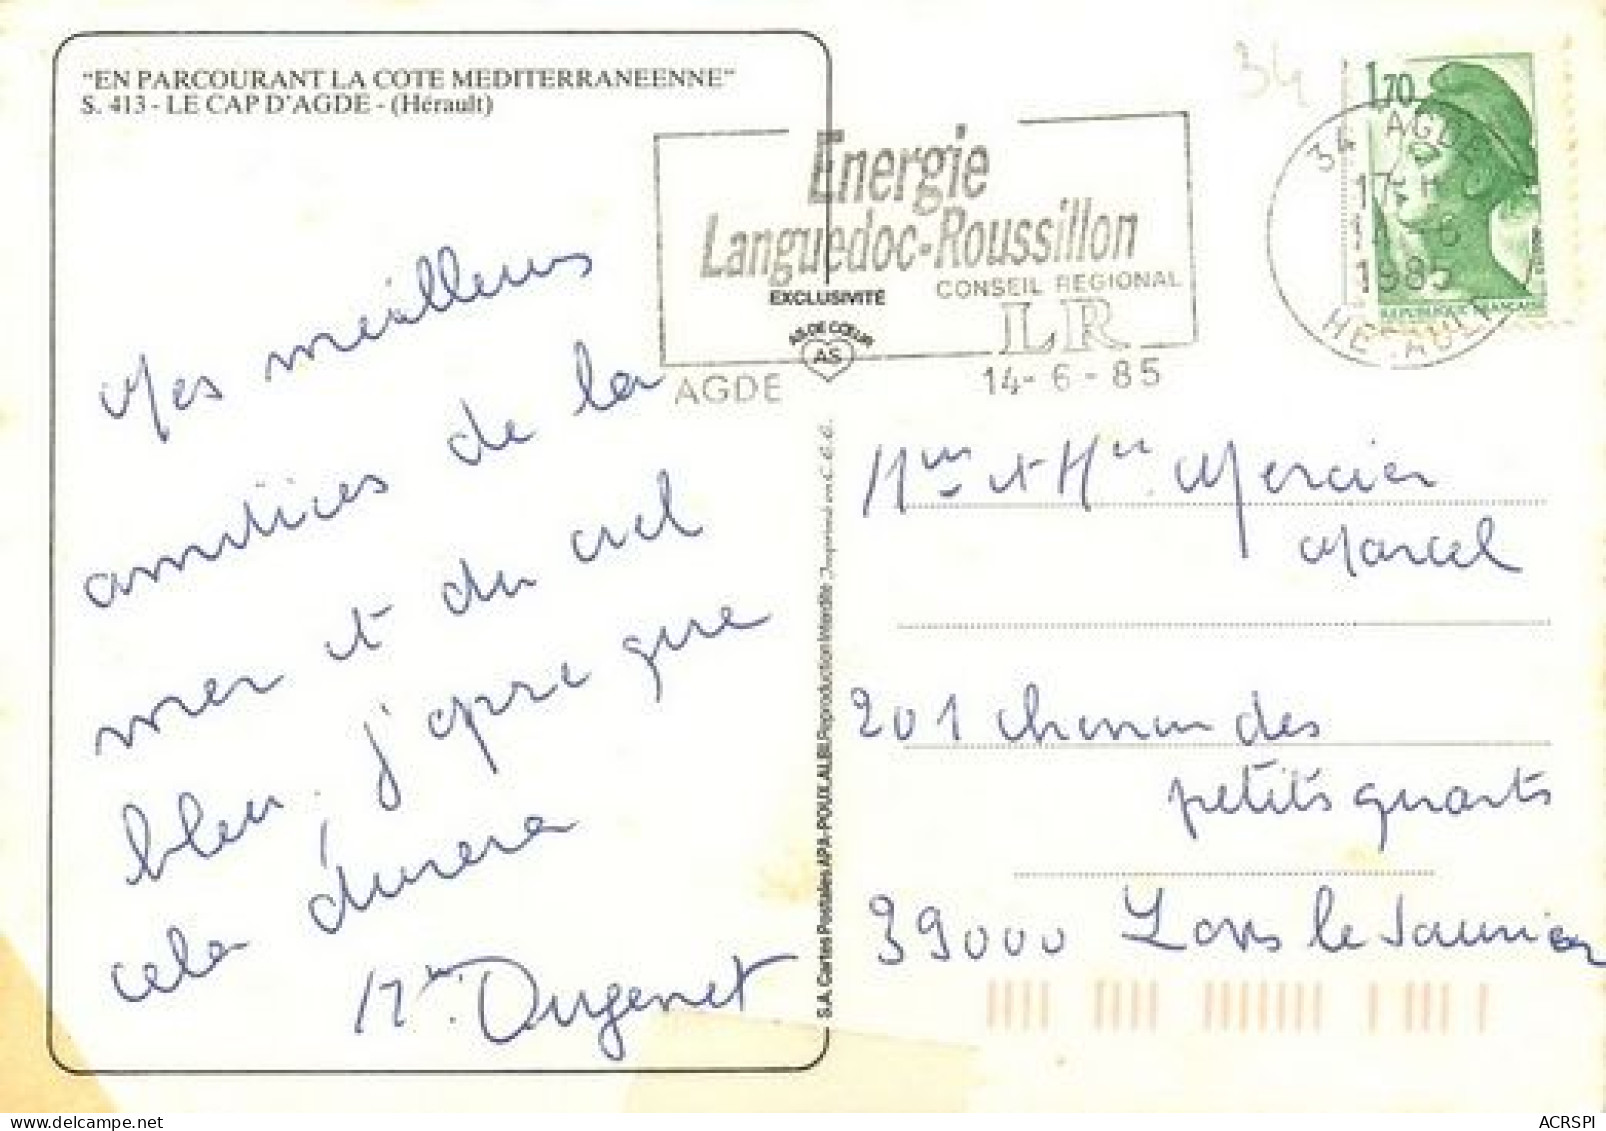 "EN PARCOURANT LA COTE MEDITERRANEENNE"
S. 413 - LE CAP D'AGDE - (Hérault)
34
1,70
34 AGDE
17 H
14-6
1985
HERAULT
REPUBLIQUE FRANÇAISE
Energie
Languedoc-Roussillon
CONSEIL REGIONAL
LR
AGDE
14-6-85
EXCLUSIVITE
AS DE CŒUR
AS
Mes meilleurs
amitiés de la
mer et du ciel
bleu. j'espère que
cela durera
S.A. Cartes Postales APA-POUX, ALBI Reproduction interdite Imprimé en C.E.E.
Mme et Mr Mercier
Marcel
201 chemin des
petits quarts
39000 Lons le Saunier
ACRSPI